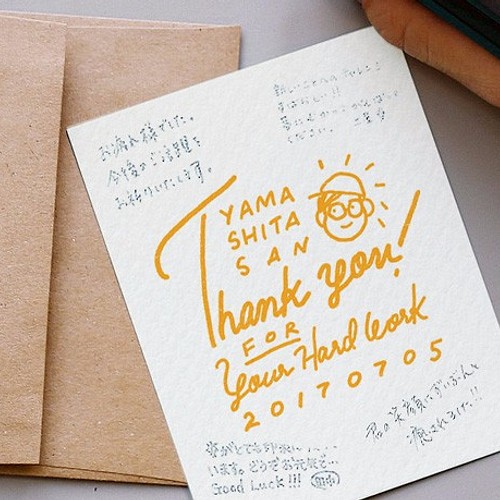 お疲れ様でした。
今後のご活躍を
お祈りいたします。
新しいことへのチャレンジ
すばらしい!!
夢にむかってがんばって
ください。
YAMA
SHITA
SAN
Thank you!
FOR
Your Hard Work
20170705
君の笑顔にずいぶんと
癒されました!!
姿がとても印象に
います。どうぞお元気で
Good Luck!!!